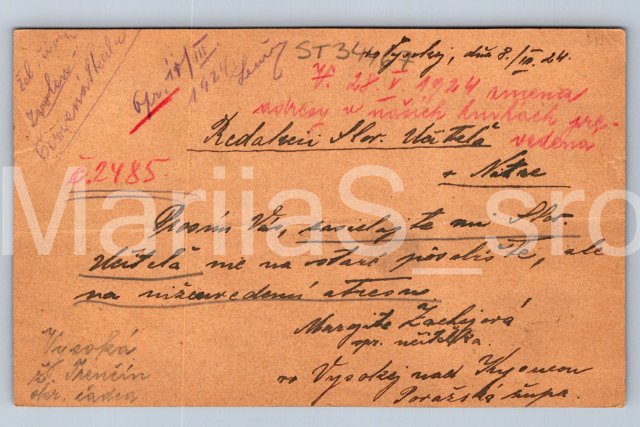 Opr. 11/III 1924
ST34467
Vysokej, dňa 8./III. 24.
7. 28 V 1924 zmena
adresy v našich knihách pre-
vedená
Redakcii Slov. Učiteľa
v Nitre
č. 2485.
Prosím Vás, zasielajte mi Slov.
Učiteľa nie na staré pôsobište, ale
na nižeuvedenú adresu
Margita
spr. učiteľka.
vo Vysokej nad Kysucou
Považská župa.
Vysoká
ž. Trenčín
okr. Čadca
MarijaS_sro